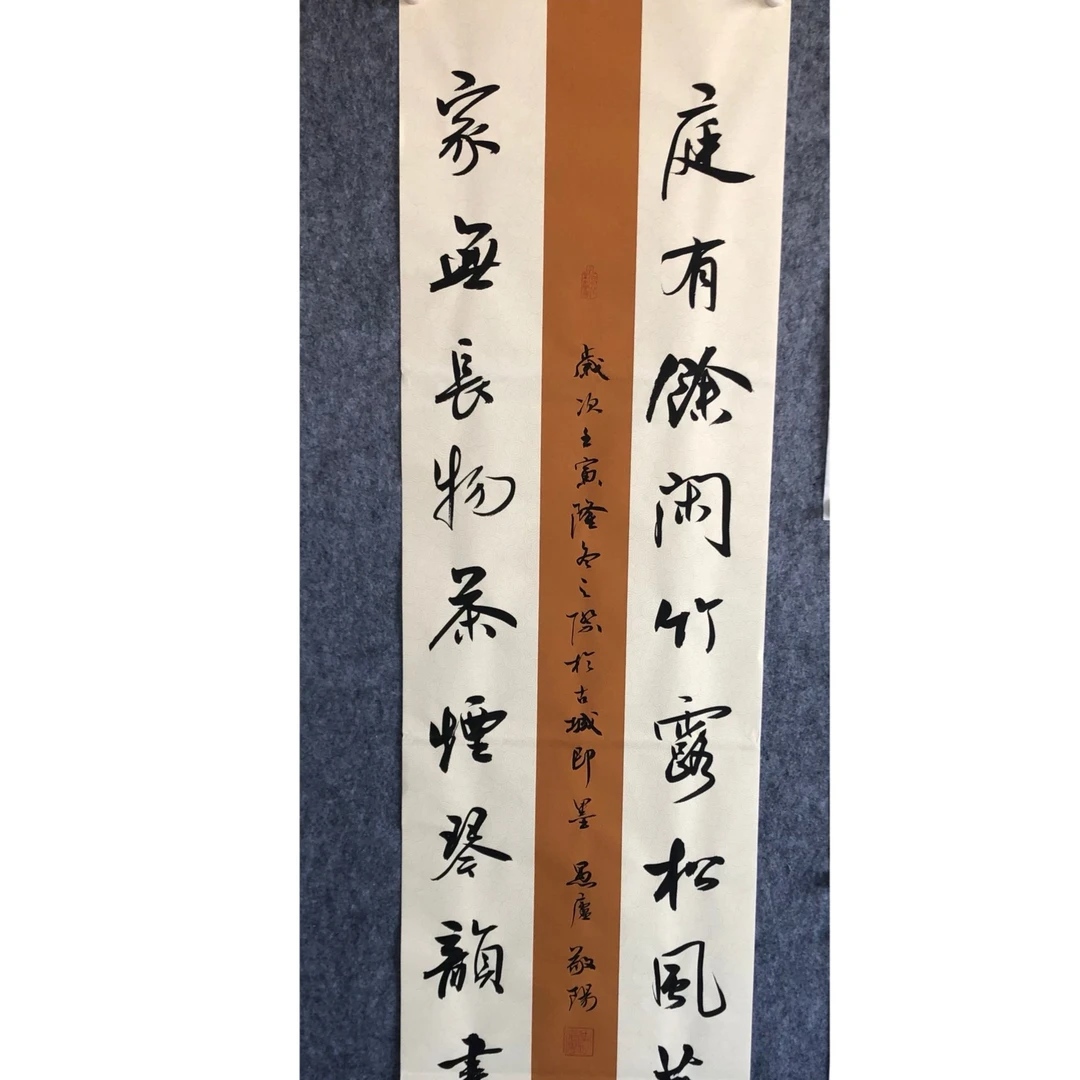 庭有餘閑竹露松風
歲次壬寅隆冬之際於古城即墨 愚廬 敬陽
家無長物茶煙琴韻書